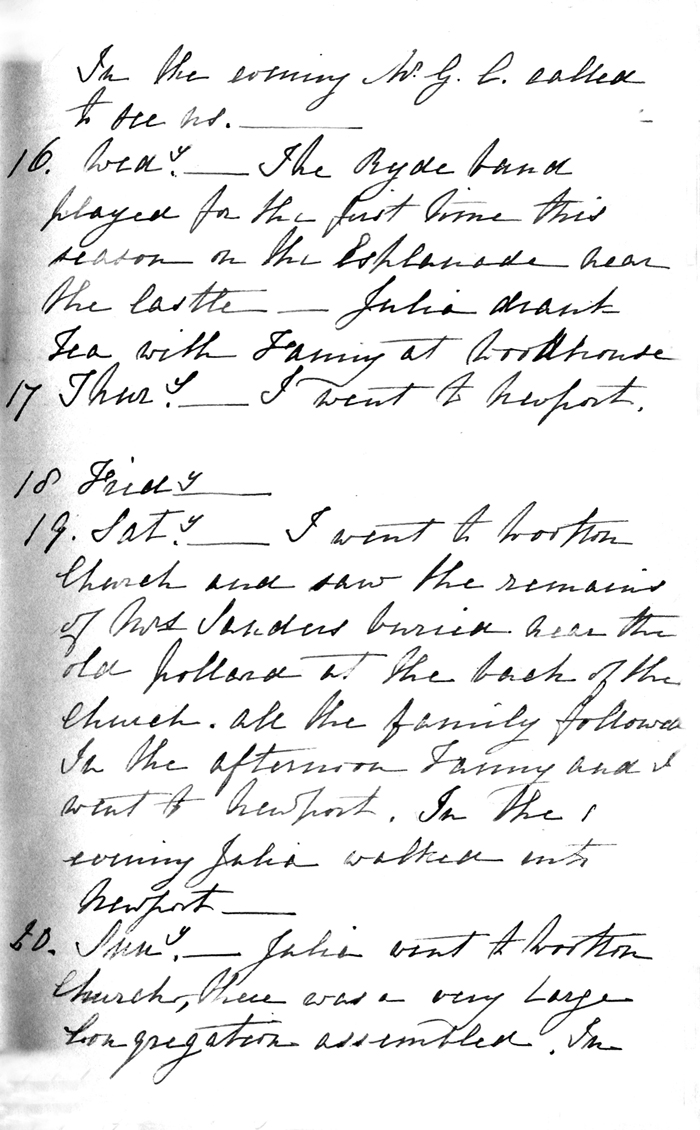 In the evening Mr. G. C. called
to see us. ———
16. Wedy. — The Ryde band
played for the first time this
season on the Esplanade near
the Castle — Julia drank
Tea with Fanny at Woodhouse
17 Thury. — I went to Newport.
18 Fridy ———
19. Saty. — I went to Wootton
Church and saw the remains
of Mrs Sanders buried near the
old pollard at the back of the
Church. all the family followed
In the afternoon Fanny and I
went to Newport. In the
evening Julia walked into
Newport ——
20. Suny. — Julia went to Wootton
Church, there was a very large
Congregation assembled. In